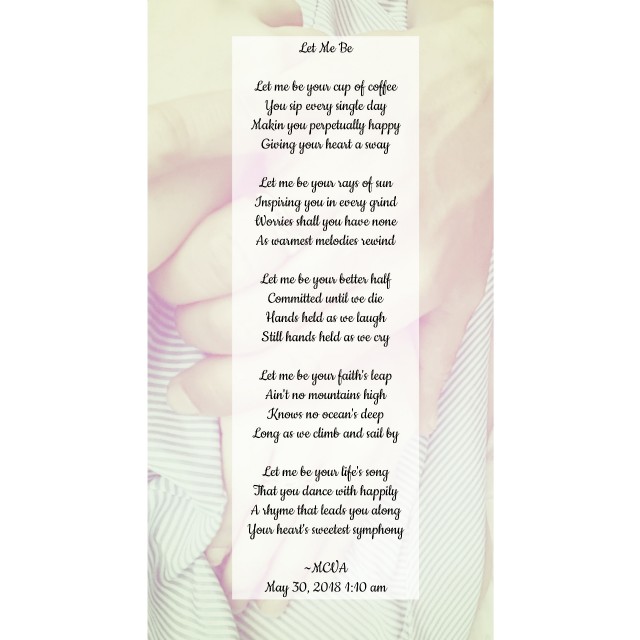 Let Me Be
Let me be your cup of coffee
You sip every single day
Makin you perpetually happy
Giving your heart a sway
Let me be your rays of sun
Inspiring you in every grind
Worries shall you have none
As warmest melodies rewind
Let me be your better half
Committed until we die
Hands held as we laugh
Still hands held as we cry
Let me be your faith's leap
Ain't no mountains high
Knows no ocean's deep
Long as we climb and sail by
Let me be your life's song
That you dance with happily
A rhyme that leads you along
Your heart's sweetest symphony
~MCVA
May 30, 2018 1:10 am